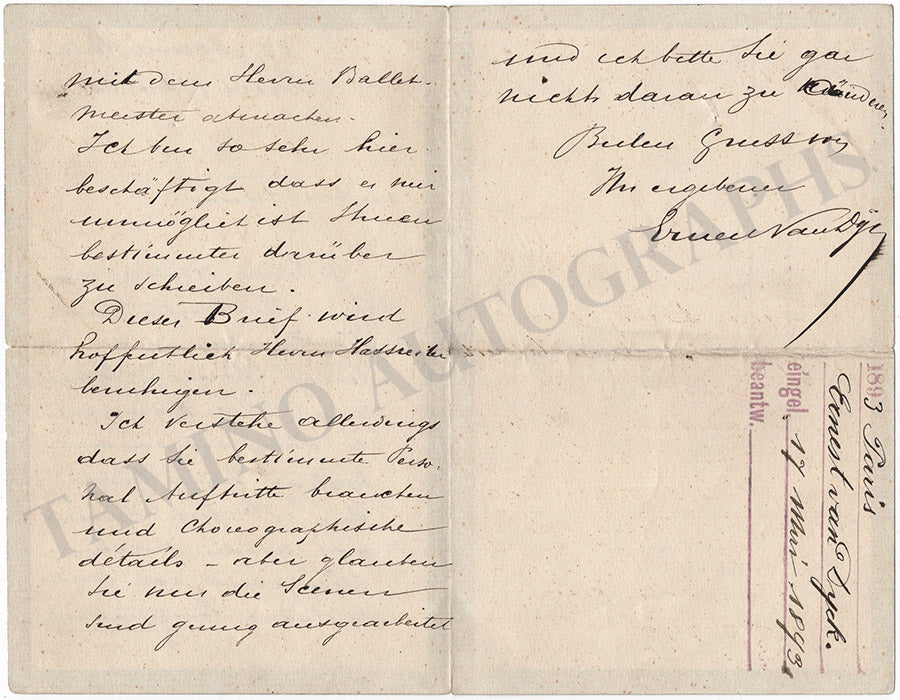 mit dem Herrn Ballet-
meister abmachen.
Ich bin so sehr hier
beschäftigt dass es mir
unmöglich ist Ihnen
bestimmter darüber
zu schreiben.
Dieser Brief wird
hoffentlich Herrn Hassreiter
beruhigen.
Ich verstehe allerdings
dass Sie bestimmte Perso-
nal Auftritte brauchen
und Choreographische
détails – aber glauben
Sie mir die Scenen
sind genug ausgearbeitet
und ich bitte Sie gar
nichts daran zu ändern.
Gruss von
Ihr ergebener
Ernest Van Dyck
1893 Paris
Ernest van Dyck.
eingel. 17 Mai 1893
beantw.
TAMINO AUTOGRAPHS